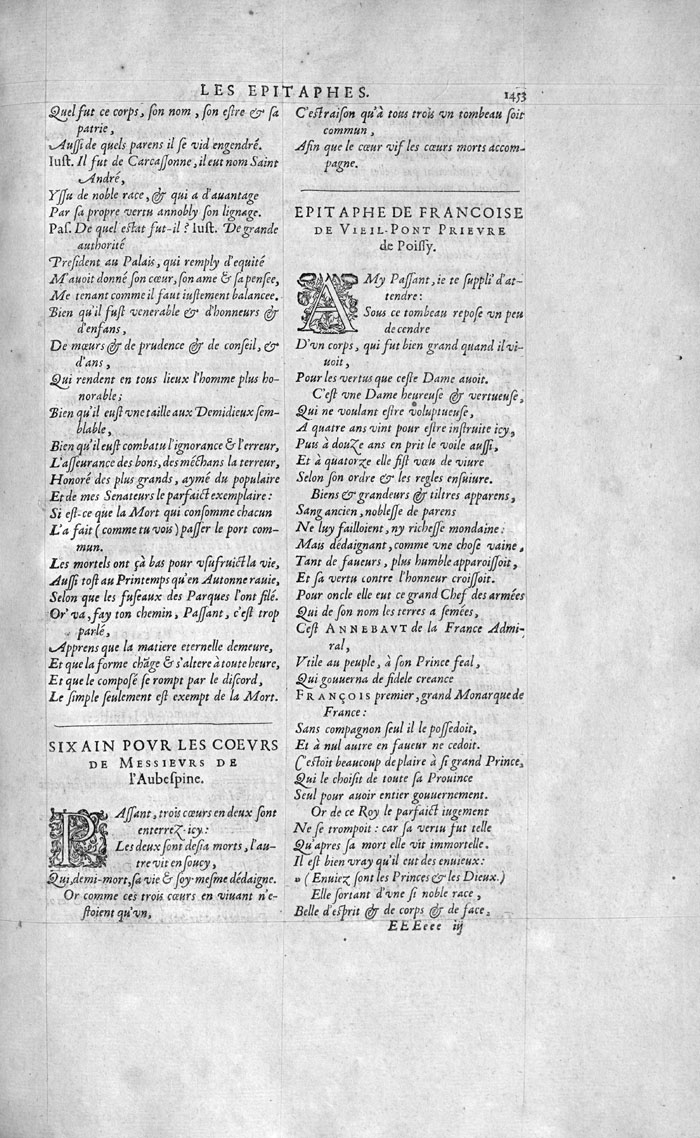 LES EPITAPHES. 1453
Quel fut ce corps, son nom, son estre & sa
patrie,
Aussi de quels parens il se vid engendré.
Iust. Il fut de Carcassonne, il eut nom Saint
André,
Yssu de noble race, & qui a d'auantage
Par sa propre vertu annobly son lignage.
Pas. De quel estat fut-il? Iust. De grande
authorité
President au Palais, qui remply d'equité
M'auoit donné son cœur, son ame & sa pensee,
Me tenant comme il faut iustement balancee.
Bien qu'il fust venerable & d'honneurs &
d'enfans,
De mœurs & de prudence & de conseil, &
d'ans,
Qui rendent en tous lieux l'homme plus ho-
norable;
Bien qu'il eust vne taille aux Demidieux sem-
blable,
Bien qu'il eust combatu l'ignorance & l'erreur,
L'asseurance des bons, des méchans la terreur,
Honoré des plus grands, aymé du populaire
Et de mes Senateurs le parfaict exemplaire:
Si est-ce que la Mort qui consomme chacun
L'a fait (comme tu vois) passer le port com-
mun.
Les mortels ont çà bas pour vsufruict la vie,
Aussi tost au Printemps qu'en Autonne rauie,
Selon que les fuseaux des Parques l'ont filé.
Or' va, fay ton chemin, Passant, c'est trop
parlé,
Apprens que la matiere eternelle demeure,
Et que la forme chãge & s'altere à toute heure,
Et que le composé se rompt par le discord,
Le simple seulement est exempt de la Mort.
SIXAIN POVR LES COEVRS
DE MESSIEVRS DE
l'Aubespine.
PAssant, trois cœurs en deux sont
enterrez icy:
Les deux sont desia morts, l'au-
tre vit en soucy,
Qui, demi-mort, sa vie & soy-mesme dédaigne.
Or comme ces trois cœurs en viuant n'e-
stoient qu'vn,
C'est raison qu'à tous trois vn tombeau soit
commun,
Afin que le cœur vif les cœurs morts accom-
pagne.
EPITAPHE DE FRANCOISE
DE VIEIL-PONT PRIEVRE
de Poissy.
AMy Passant, ie te suppli d'at-
tendre:
Sous ce tombeau repose vn peu
de cendre
D'vn corps, qui fut bien grand quand il vi-
uoit,
Pour les vertus que ceste Dame auoit.
C'est vne Dame heureuse & vertueuse,
Qui ne voulant estre voluptueuse,
A quatre ans vint pour estre instruite icy,
Puis à douze ans en prit le voile aussi,
Et à quatorze elle fist vœu de viure
Selon son ordre & les regles ensuiure.
Biens & grandeurs & tiltres apparens,
Sang ancien, noblesse de parens
Ne luy failloient, ny richesse mondaine:
Mais dédaignant, comme vne chose vaine,
Tant de faueurs, plus humble apparoissoit,
Et sa vertu contre l'honneur croissoit.
Pour oncle elle eut ce grand Chef des armées
Qui de son nom les terres a semées,
C'est ANNEBAVT de la France Admi-
ral,
Vtile au peuple, à son Prince feal,
Qui gouuerna de fidele creance
FRANÇOIS premier, grand Monarque de
France:
Sans compagnon seul il le possedoit,
Et à nul autre en faueur ne cedoit.
C'estoit beaucoup de plaire à si grand Prince,
Qui le choisit de toute sa Prouince
Seul pour auoir entier gouuernement.
Or de ce Roy le parfaict iugement
Ne se trompoit: car sa vertu fut telle
Qu'apres sa mort elle vit immortelle.
Il est bien vray qu'il eut des enuieux:
» (Enuiez sont les Princes & les Dieux.)
Elle sortant d'vne si noble race,
Belle d'esprit & de corps & de face,
EEEeee iij